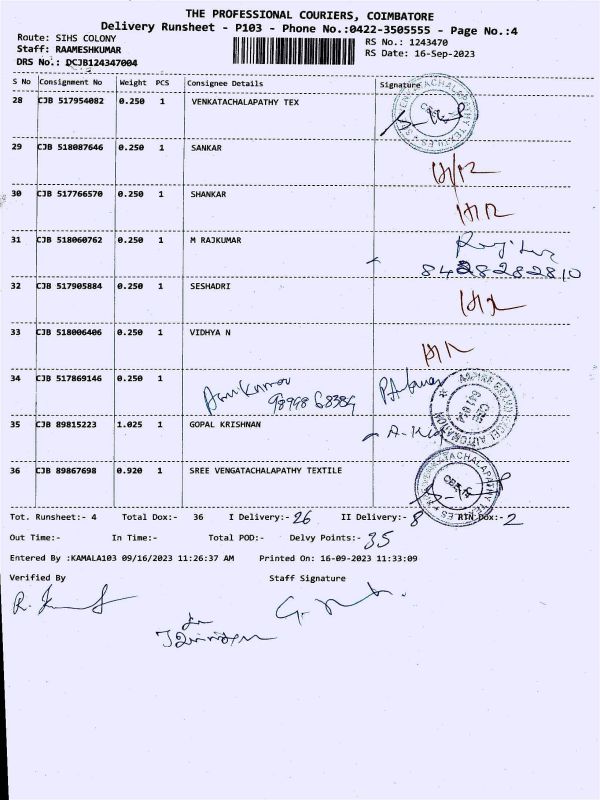 THE PROFESSIONAL COURIERS, COIMBATORE
Delivery Runsheet - P103 - Phone No.:0422-3505555 - Page No.:4
Route: SIHS COLONY
RS No.: 1243470
Staff: RAAMESHKUMAR
RS Date: 16-Sep-2023
DRS No.: DCJB124347004
S No Consignment No Weight PCS Consignee Details Signature
28 CJB 517954082 0.250 1 VENKATACHALAPATHY TEX
29 CJB 518087646 0.250 1 SANKAR
30 CJB 517766570 0.250 1 SHANKAR
31 CJB 518060762 0.250 1 M RAJKUMAR
8428282810
32 CJB 517905884 0.250 1 SESHADRI
33 CJB 518006406 0.250 1 VIDHYA N
34 CJB 517869146 0.250 1
35 CJB 89815223 1.025 1 GOPAL KRISHNAN
36 CJB 89867698 0.920 1 SREE VENGATACHALAPATHY TEXTILE
Tot. Runsheet:- 4 Total Dox:- 36 I Delivery:- 26 II Delivery:- 8 RTN Dox:- 2
Out Time:- In Time:- Total POD:- Delvy Points:- 35
Entered By :KAMALA103 09/16/2023 11:26:37 AM Printed On: 16-09-2023 11:33:09
Verified By Staff Signature